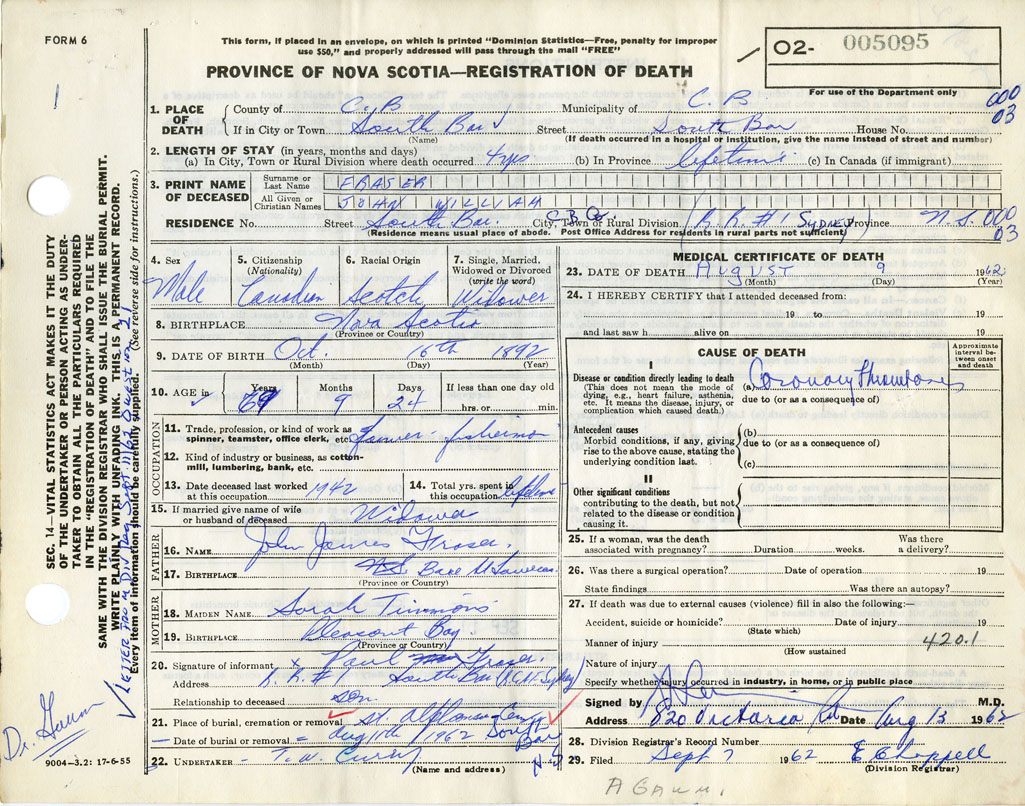 FORM 6
This form, if placed in an envelope, on which is printed "Dominion Statistics—Free, penalty for improper
use $50," and properly addressed will pass through the mail "FREE"
PROVINCE OF NOVA SCOTIA—REGISTRATION OF DEATH
O2- 005095
For use of the Department only
000
03
1
1. PLACE OF DEATH { County of C.B Municipality of C.B
If in City or Town South Bar Street South Bar House No.
(Name) (If death occurred in a hospital or institution, give the name instead of street and number)
2. LENGTH OF STAY (in years, months and days)
(a) In City, Town or Rural Division where death occurred 4 yrs (b) In Province lifetime (c) In Canada (if immigrant)
3. PRINT NAME OF DECEASED { Surname or Last Name FRASER
All Given or Christian Names JOHN WILLIAM
RESIDENCE No. Street South Bar C.B Co. City, Town or Rural Division (R.R.#1 SYDNEY) Province N.S. 000
03
(Residence means usual place of abode. Post Office Address for residents in rural parts not sufficient)
4. Sex
Male
5. Citizenship
(Nationality)
Canadian
6. Racial Origin
Scotch
7. Single, Married,
Widowed or Divorced
(write the word)
Widower
8. BIRTHPLACE Nova Scotia
(Province or Country)
9. DATE OF BIRTH Oct. 16th 1892
(Month) (Day) (Year)
10. AGE in { Years 69 Months 9 Days 24 If less than one day old
hrs. or min.
OCCUPATION
11. Trade, profession, or kind of work as
spinner, teamster, office clerk, etc. farmer - fisherman
12. Kind of industry or business, as cotton-
mill, lumbering, bank, etc.
13. Date deceased last worked
at this occupation 1942
14. Total yrs. spent in
this occupation lifetime
15. If married give name of wife
or husband of deceased Widower
FATHER
16. NAME John James Fraser.
17. BIRTHPLACE Cape St Lawrence
(Province or Country)
MOTHER
18. MAIDEN NAME Sarah Timmons
19. BIRTHPLACE Pleasant Bay
(Province or Country)
20. Signature of informant x Paul Fraser.
Address R.R.#1 South Bar (R.R.#1 Sydney)
Relationship to deceased son.
21. Place of burial, cremation or removal St. Alphonsus Cem
Date of burial or removal Aug 11th 1962 South Bar
N.S
22. UNDERTAKER T.W. Curry
(Name and address)
9004—3.2: 17-6-55
MEDICAL CERTIFICATE OF DEATH
23. DATE OF DEATH August 9 1962
(Month) (Day) (Year)
24. I HEREBY CERTIFY that I attended deceased from:
19 to 19
and last saw h alive on 19
CAUSE OF DEATH
Approximate
interval be-
tween onset
and death
I
Disease or condition directly leading to death
(This does not mean the mode of
dying, e.g., heart failure, asthenia,
etc. It means the disease, injury, or
complication which caused death.)
(a) Coronary Thrombosis
due to (or as a consequence of)
Antecedent causes
Morbid conditions, if any, giving
rise to the above cause, stating the
underlying condition last.
(b)
due to (or as a consequence of)
(c)
II
Other significant conditions
contributing to the death, but not
related to the disease or condition
causing it.
25. If a woman, was the death
associated with pregnancy? Duration weeks. Was there
a delivery?
26. Was there a surgical operation? Date of operation 19
State findings Was there an autopsy?
27. If death was due to external causes (violence) fill in also the following:—
Accident, suicide or homicide? Date of injury 19
(State which)
Manner of injury 420.1
(How sustained
Nature of injury
Specify whether injury occurred in industry, in home, or in public place
Signed by M.D.
Address 820 Victoria Rd Date Aug 13 1962
28. Division Registrar's Record Number
29. Filed Sept 7 1962 E Chappell
(Division Registrar)
A Gaum.
SEC. 14—VITAL STATISTICS ACT MAKES IT THE DUTY
OF THE UNDERTAKER OR PERSON ACTING AS UNDER-
TAKER TO OBTAIN ALL THE PARTICULARS REQUIRED
IN THE "REGISTRATION OF DEATH" AND TO FILE THE
SAME WITH THE DIVISION REGISTRAR WHO SHALL ISSUE THE BURIAL PERMIT.
WRITE PLAINLY WITH UNFADING INK. THIS IS A PERMANENT RECORD.
Every item of information should be carefully supplied. (See reverse side for instructions.)
Dr. Gaum